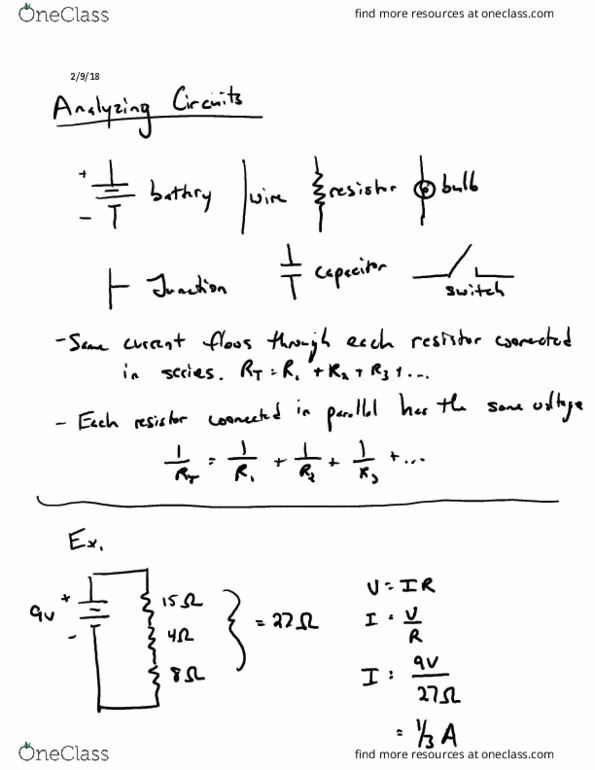 OneClass
find more resources at oneclass.com
2/9/18
Analyzing Circuits
+ - battery
wire
resistor
bulb
Junction
capacitor
switch
- Same current flows through each resistor connected
in series. R_T = R_1 + R_2 + R_3 + ...
- Each resistor connected in parallel has the same voltage
1/R_T = 1/R_1 + 1/R_2 + 1/R_3 + ...
Ex.
9V + -
15Ω
4Ω
8Ω
= 27Ω
V = IR
I = V/R
I = 9V/27Ω
= 1/3 A
OneClass
find more resources at oneclass.com